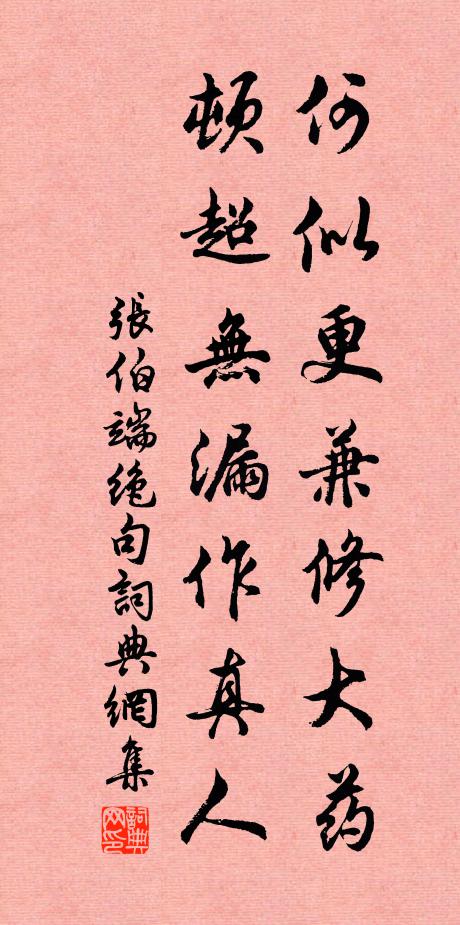 何似更兼修大药
顿超無漏作真人
張伯端绝句詞典網集
詞典网印